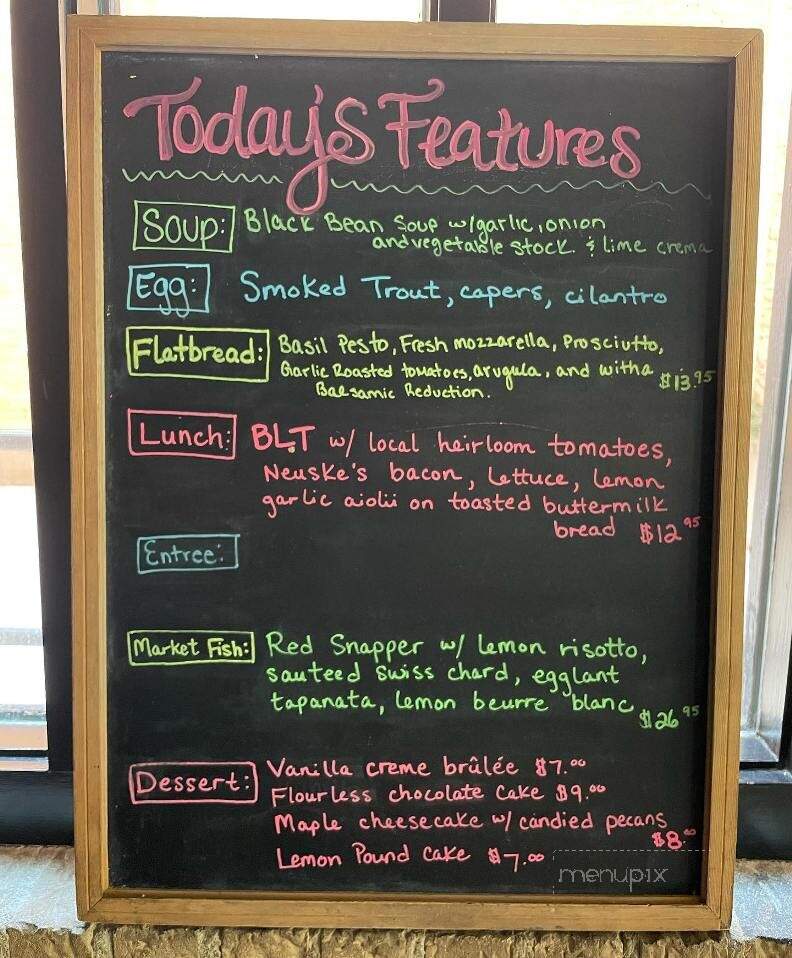 Today's Features
Soup: Black Bean Soup w/garlic, onion
and vegetable stock. & lime crema
Egg: Smoked Trout, capers, cilantro
Flatbread: Basil Pesto, Fresh mozzarella, Prosciutto,
Garlic Roasted tomatoes, arugula, and with a $13.95
Balsamic Reduction.
Lunch: BLT w/ local heirloom tomatoes,
Neuske's bacon, Lettuce, Lemon
garlic aiolii on toasted buttermilk
bread $12.95
Entree:
Market Fish: Red Snapper w/ lemon risotto,
sauteed swiss chard, egglant
tapanata, lemon beurre blanc $26.95
Dessert: Vanilla creme brûlée $7.00
Flourless chocolate cake $9.00
Maple cheesecake w/ candied pecans
$8.00
Lemon Pound cake $7.00
menupix